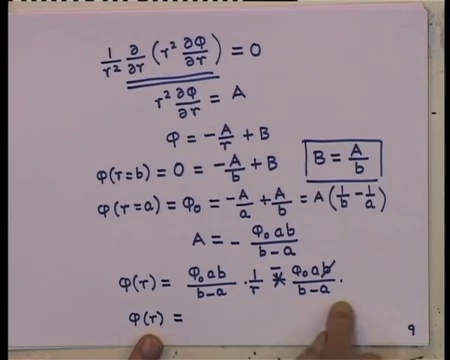 1/r² ∂/∂r (r² ∂φ/∂r) = 0
r² ∂φ/∂r = A
φ = -A/r + B
φ(r=b) = 0 = -A/b + B    B = A/b
φ(r=a) = φ₀ = -A/a + A/b = A(1/b - 1/a)
A = - φ₀ab/b-a
φ(r) = φ₀ab/b-a · 1/r - φ₀ab/b-a ·
φ(r) =
9